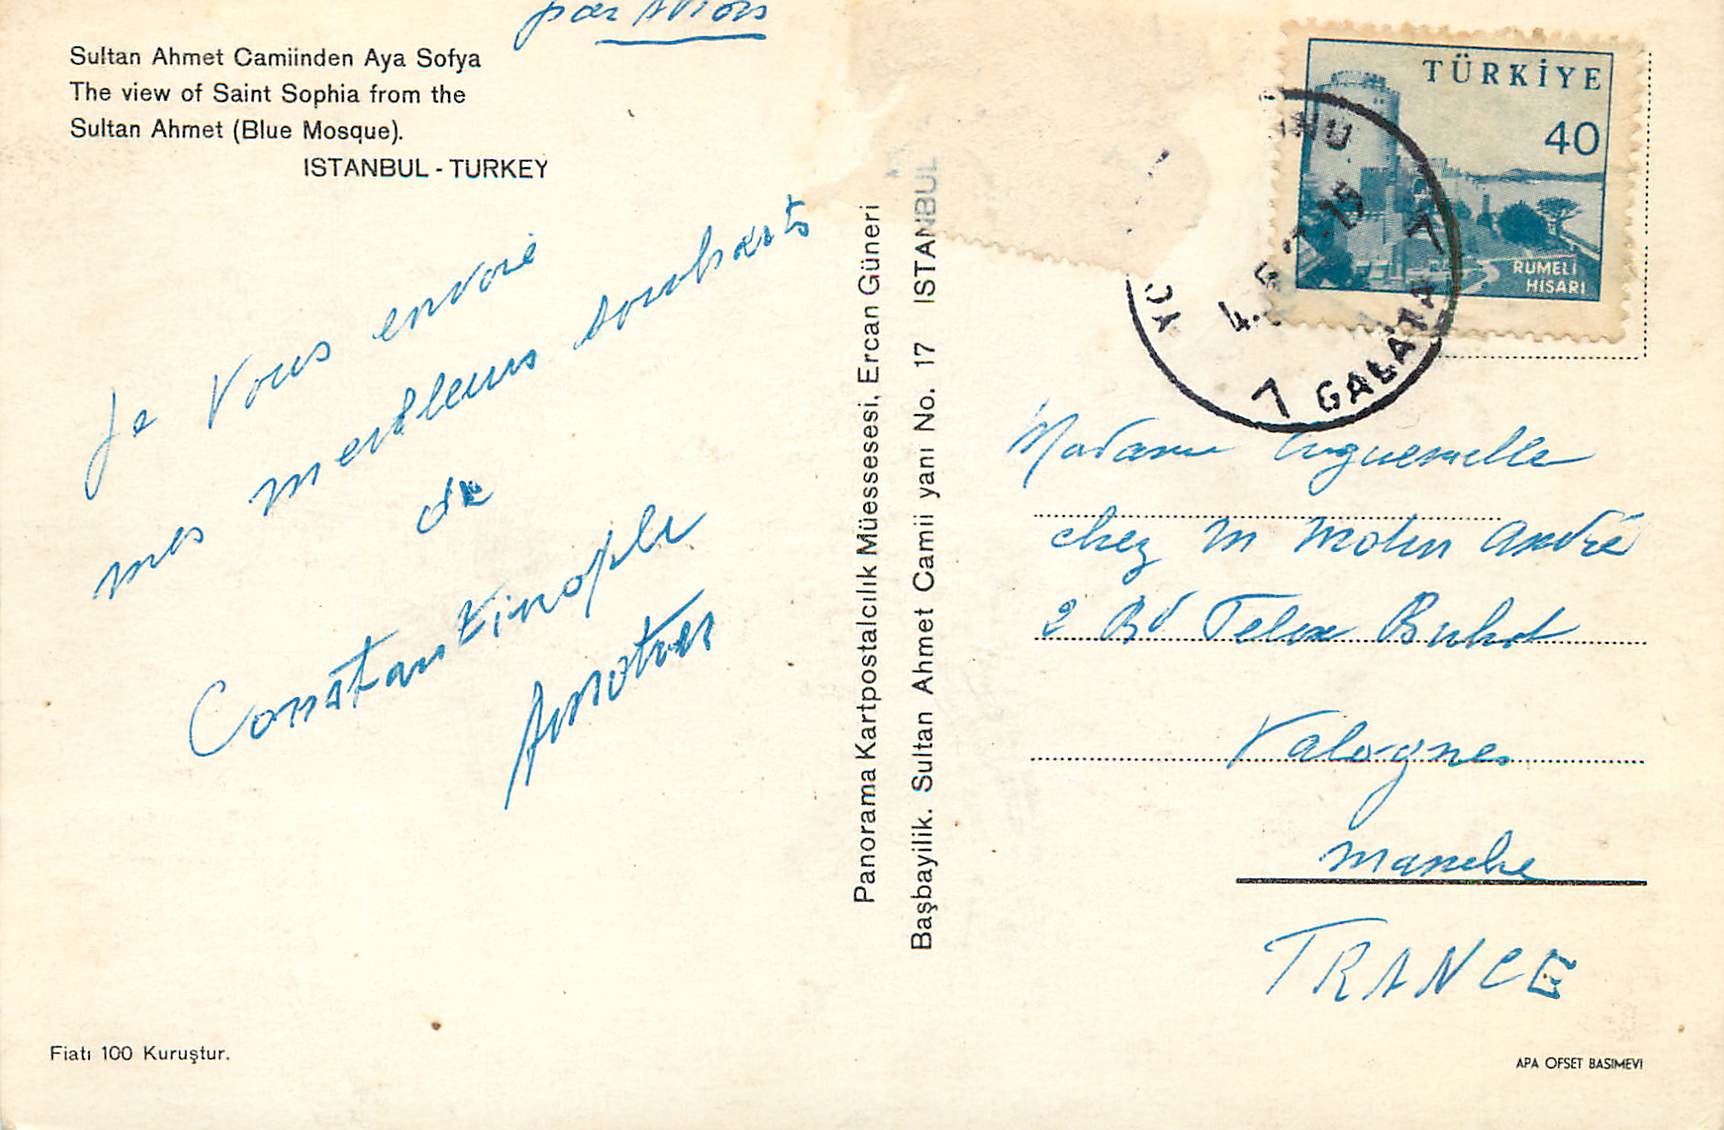 par avion
Sultan Ahmet Camiinden Aya Sofya
The view of Saint Sophia from the
Sultan Ahmet (Blue Mosque).
ISTANBUL - TURKEY
Je vous envoie
mes meilleurs souhaits
de
Constantinople
Panorama Kartpostalcılık Müessesesi, Ercan Güneri
Başbayilik. Sultan Ahmet Camii yanı No. 17 ISTANBUL
TÜRKİYE
40
RUMELİ
HİSARI
GALATA
Madame
chez M Molin André
2 Bd Felix Buhot
Valognes
Manche
FRANCE
Fiatı 100 Kuruştur.
APA OFSET BASIMEVİ